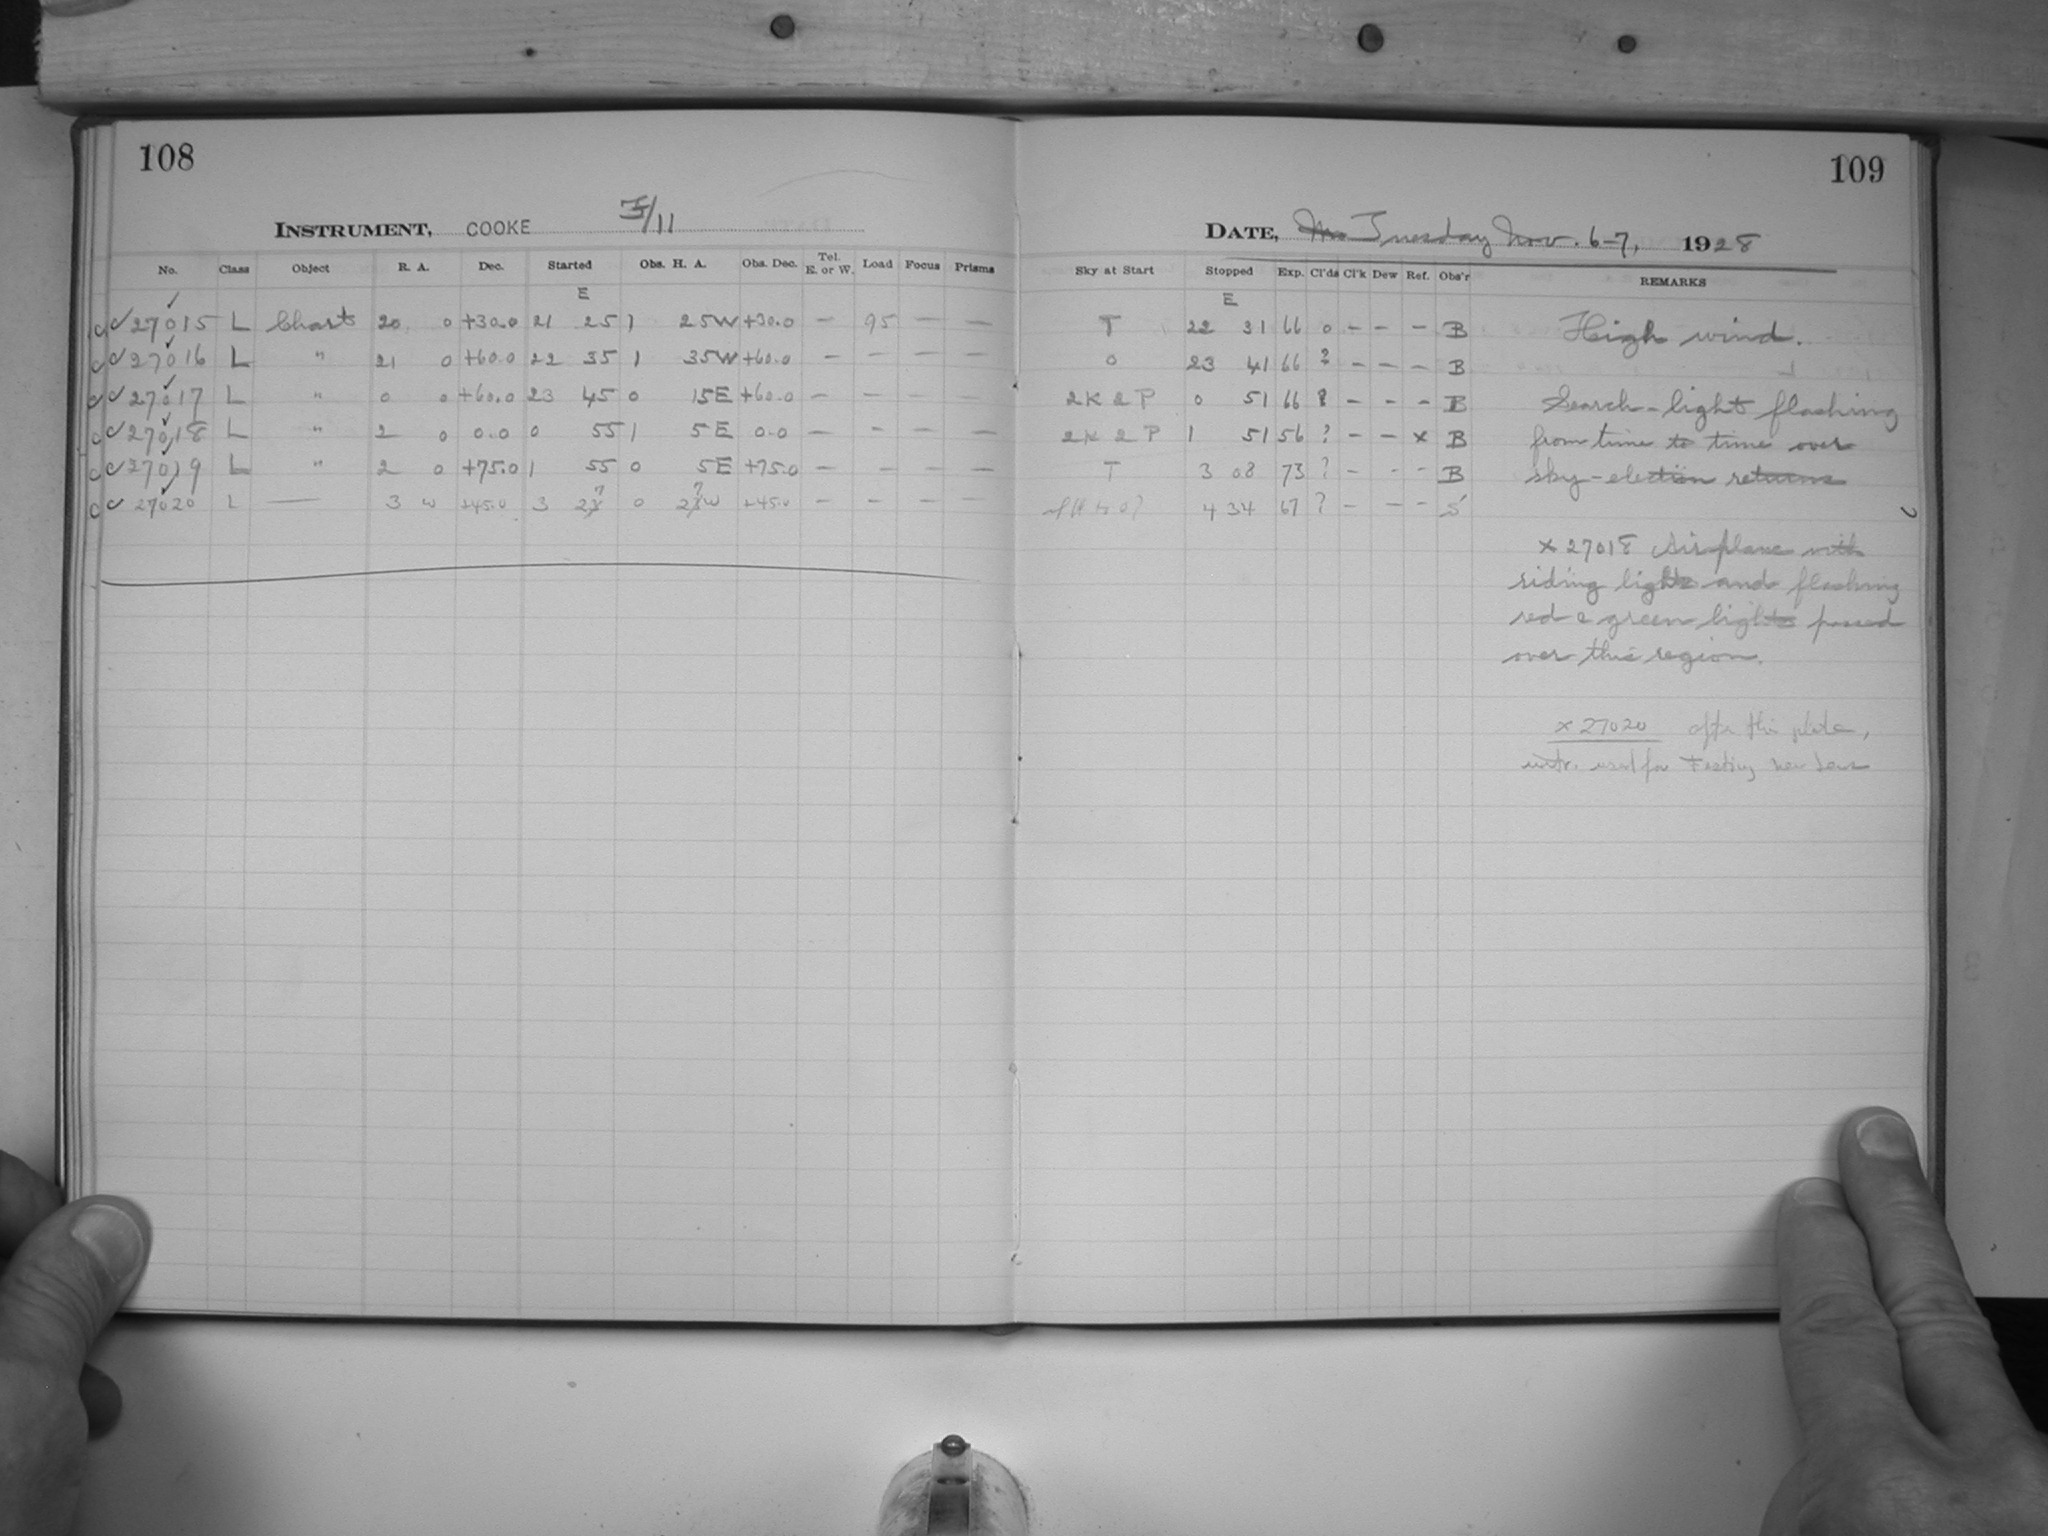 108
INSTRUMENT, COOKE /11
No. Class Object R. A. Dec. Started Obs. H. A. Obs. Dec. Tel. E. or W. Load Focus Prisms
E
✓ 27015 L Chart 20 0 +30.0 21 25 1 25W +30.0 — 95 — —
✓ 27016 L " 21 0 +60.0 22 35 1 35W +60.0 — — — —
✓ 27017 L " 0 0 +60.0 23 45 0 15E +60.0 — — — —
✓ 27018 L " 2 0 0.0 0 55 1 5E 0.0 — - — —
✓ 27019 L " 2 0 +75.0 1 55 0 5E +75.0 — — — —
✓ 27020 L — 3 w +45.0 3 27 0 27w +45.0 — — — —
109
DATE, Tuesday Nov. 6-7, 1928
Sky at Start Stopped Exp. Cl'ds Cl'k Dew Ref. Obs'r REMARKS
E
T 22 31 66 0 - - - B High wind.
0 23 41 66 ? - - - B
2K 2P 0 51 66 ? - - - B Search-light flashing
2K 2P 1 51 56 ? - - x B from time to time over
T 3 08 73 ? - - - B sky-election returns
4 34 67 ? - - - S
x 27018 Airplane with
riding lights and flashing
red & green lights passed
over this region.
x 27020 after this plate,
instr. used for testing new lens